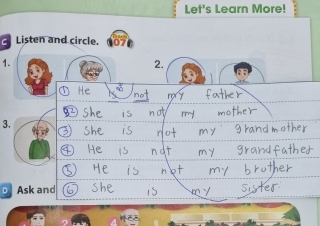 Let's Learn More!
C Listen and circle. Track 07
1.
2.
① He is not my father
② She is not my mother
3.
③ She is not my grandmother
④ He is not my grandfather
⑤ He is not my brother
D Ask and
⑥ She is my sister